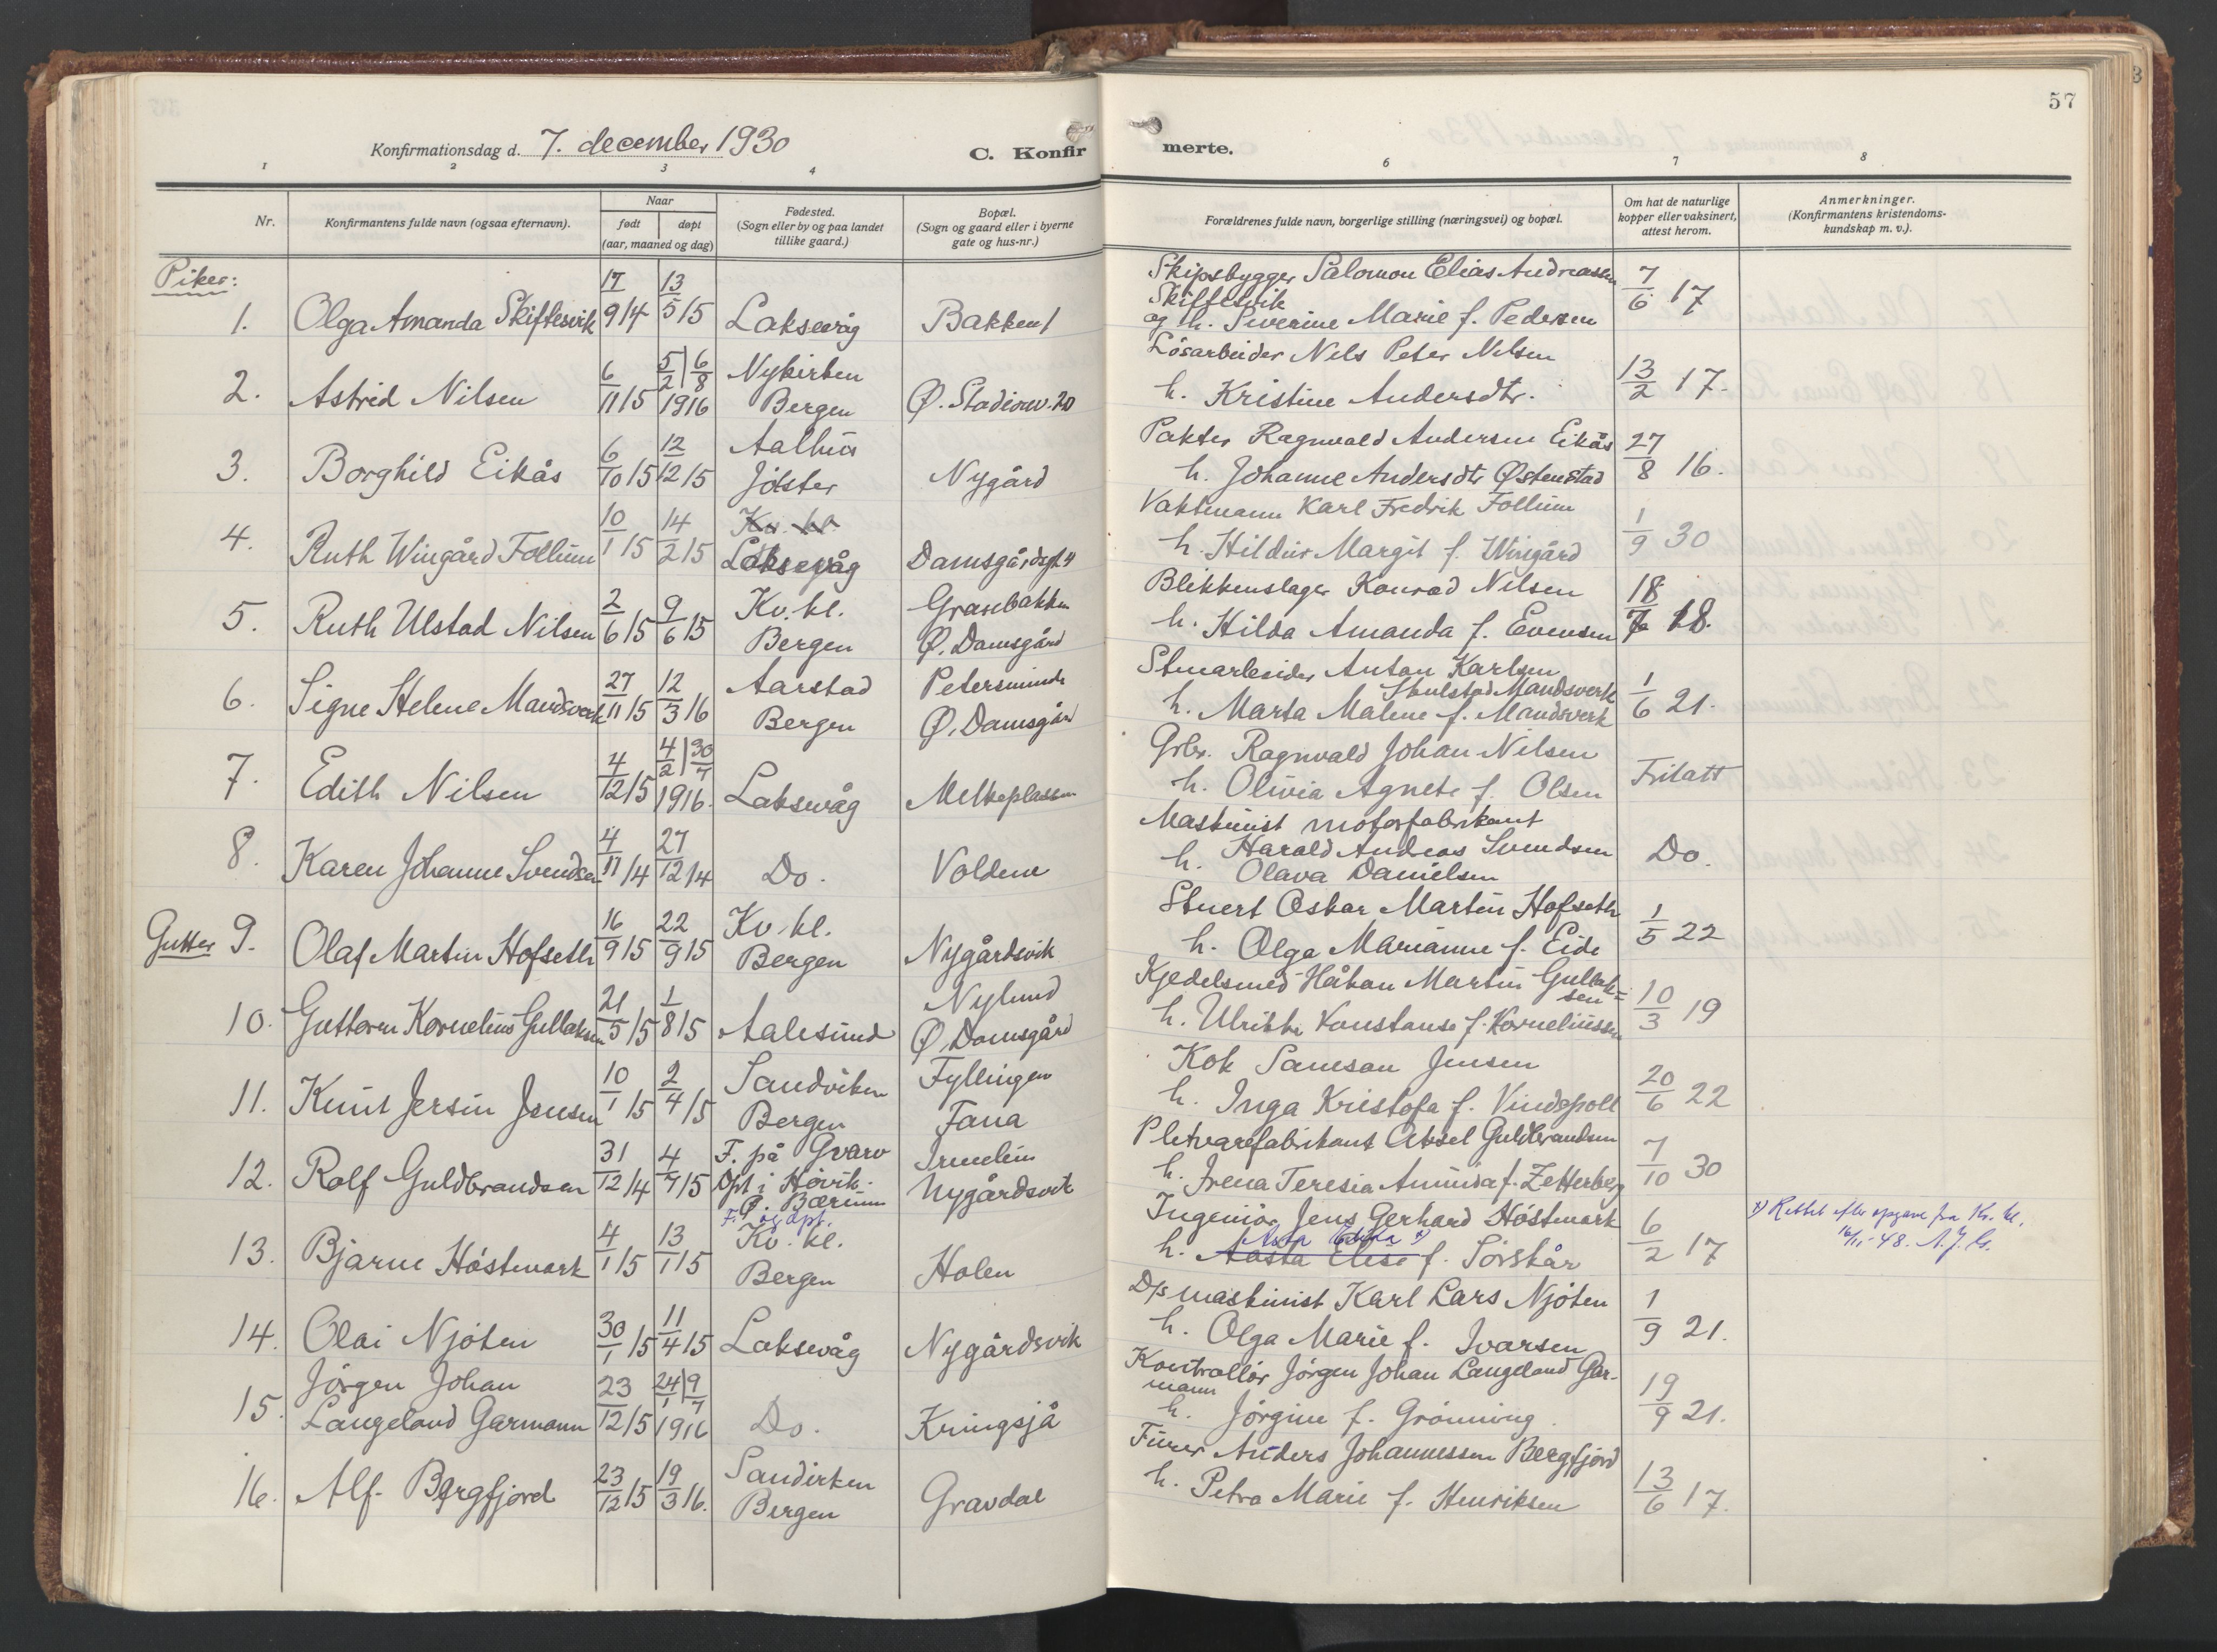 57
Konfirmationsdag d. 7. december 1930
C. Konfirmerte.
1 2 3 4 6 7 8
Nr.
Konfirmantens fulde navn (ogsaa efternavn).
Naar
født døpt
(aar, maaned og dag)
Fødested.
(Sogn eller by og paa landet
tillike gaard.)
Bopæl.
(Sogn og gaard eller i byerne
gate og hus-nr.)
Forældrenes fulde navn, borgerlige stilling (næringsvei) og bopæl.
Om hat de naturlige
kopper eller vaksinert,
attest herom.
Anmerkninger.
(Konfirmantens kristendoms-
kundskap m. v.).
Piker:
1. Olga Amanda Skiftesvik 17/9 14 13/5 15 Laksevåg Bakken 1
Skipsbygger Salomon Elias Andreasen
Skiftesvik
og h. Severine Marie f. Pedersen
7/6 17
2. Astrid Nilsen 6/11 15 5/2 | 6/8 1916 Nykirken
Bergen Ø. Stadionv. 20
Løsarbeider Nils Peter Nilsen
h. Kristine Andersdtr.
13/2 17.
3. Borghild Eikås 6/10 15 12/12 15 Aalhus
Jølster Nygård
Pakter Ragnvald Andersen Eikås
h. Johanne Andersdtr Østenstad
27/8 16.
4. Ruth Wingård Follum 10/1 15 14/2 15 Kv. kl.
Laksevåg Damsgårdsgt 4
Vaktmann Karl Fredrik Follum
h. Hildur Margit f. Wingård
1/9 30
5. Ruth Ulstad Nilsen 2/6 15 9/6 15 Kv. kl.
Bergen Granebakken
Ø. Damsgård
Blikkenslager Konrad Nilsen
h. Hilda Amanda f. Evensen
18/7 18.
6. Signe Helene Mandsverk 27/11 15 12/3 16 Aarstad
Bergen Petersminde
Ø. Damsgård
Stuearbeider Anton Karlsen
Skulstad Mandsverk
h. Marta Malene f. Mandsverk
1/6 21.
7. Edith Nilsen 4/12 15 4/2 | 30/4 1916. Laksevåg Melkeplassen
Grbr. Ragnvald Johan Nilsen
h. Olivia Agnete f. Olsen
Fritatt
8. Karen Johanne Svendsen 4/11 14 27/12 14 Do. Voldene
Maskinist motorfabrikant
Harald Andreas Svendsen
h. Olava Danielsen
Do.
Gutter 9. Olaf Martin Hofseth 16/9 15 22/9 15 Kv. kl.
Bergen Nygårdsvik
Stuert Oskar Martin Hofseth
h. Olga Marianne f. Eide
1/5 22
10. Guttorm Kornelius Gullaksen 21/5 15 1/8 15 Aalesund Nylund
Ø. Damsgård
Kjedelsmed Håkon Martin Gullak=
sen
h. Ulrikke Konstanse f. Korneliussen
10/3 19
11. Knut Jersin Jensen 10/1 15 2/4 15 Sandviken
Bergen Fyllingen
Fana
Kok Samson Jensen
h. Inga Kristofa f. Vindspoll
20/6 22
12. Rolf Guldbrandsen 31/12 14 4/7 15 F. på Gvarv
Dpt i Høvik.
Ø. Bærum
Irmelin
Nygårdsvik
Pletvarefabrikant Aksel Guldbrandsen
h. Irena Teresia Aminda f. Zetterberg
7/10 30
13. Bjarne Høstmark 4/1 15 13/1 15 F. og dpt.
Kv. kl.
Bergen Holen
Ingeniør Jens Gerhard Høstmark
h. Aasta Elise f. Sørskår
6/2 17
x) Rettet efter opgave fra Kv. kl.
16/11-48. A.J.G.
14. Olai Njøten 30/1 15 11/4 15 Laksevåg Nygårdsvik
D/s maskinist Karl Lars Njøten
h. Olga Marie f. Ivarsen
1/9 21.
15. Jørgen Johan
Langeland Garmann 23/12 15 24/1 | 9/7 1916 Do. Kringsjå
Kontrollør Jørgen Johan Langeland Gar-
mann
h. Jørgine f. Grønning
19/9 21.
16. Alf Bergfjord 23/12 15 19/3 16. Sandvirken
Bergen Gravdal
Fører Anders Johannessen Bergfjord
h. Petra Marie f. Henriksen
13/6 17.